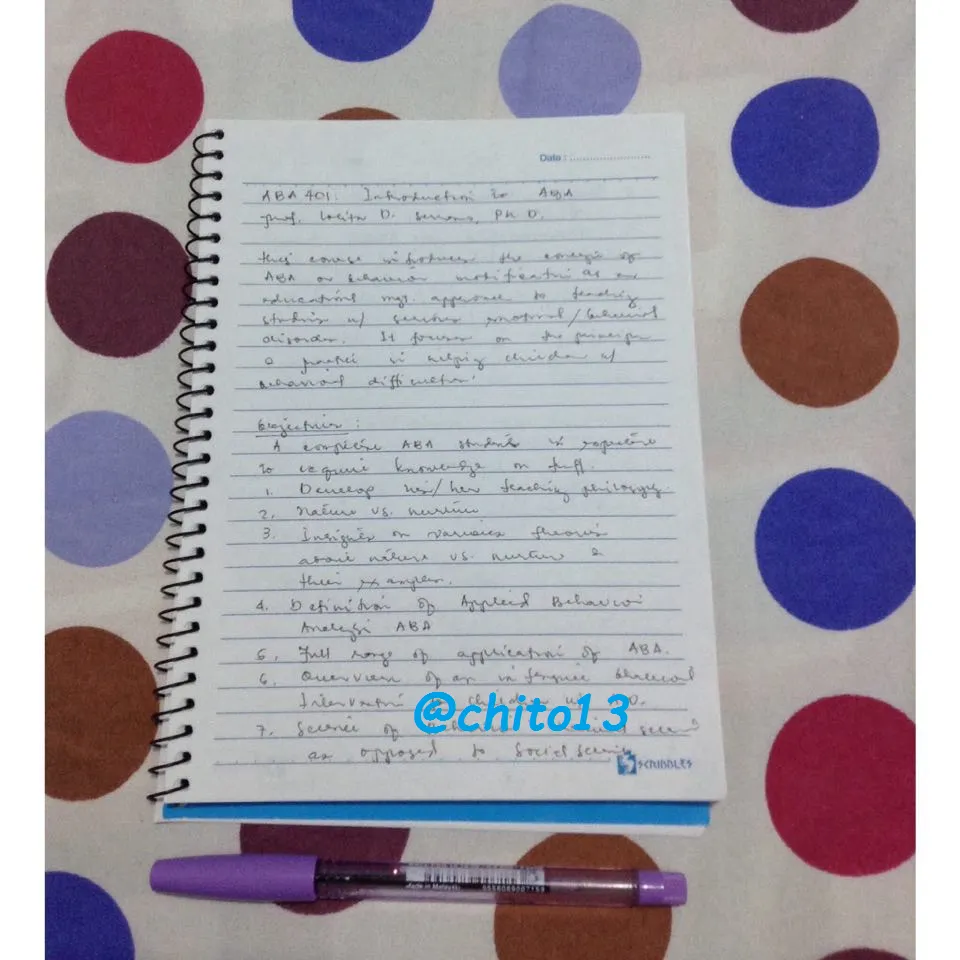 Date : ........................
ABA 401: Introduction to ABA
Prof. D. Ph.D.
This course introduces the concept of
ABA or behavior modification as an
educational mgt. approach to teaching
w/ serious emotional/behavioral
disorder. It focuses on the principle
& practice in helping children w/
behavioral difficulties.
Objectives :
A ABA students is
to acquire knowledge on
1. Develop his/her teaching philosophy.
2. Nature vs. nurture
3. Insights on various theories
about nature vs. nurture &
their examples.
4. Definition of Applied Behavior
Analysis ABA
5. Full range of application of ABA.
6. Overview of an behavioral
Intervention children
7. Science of
as opposed to Social Science
@chito13
SCRIBBLES
Made in Malaysia
9556089007159